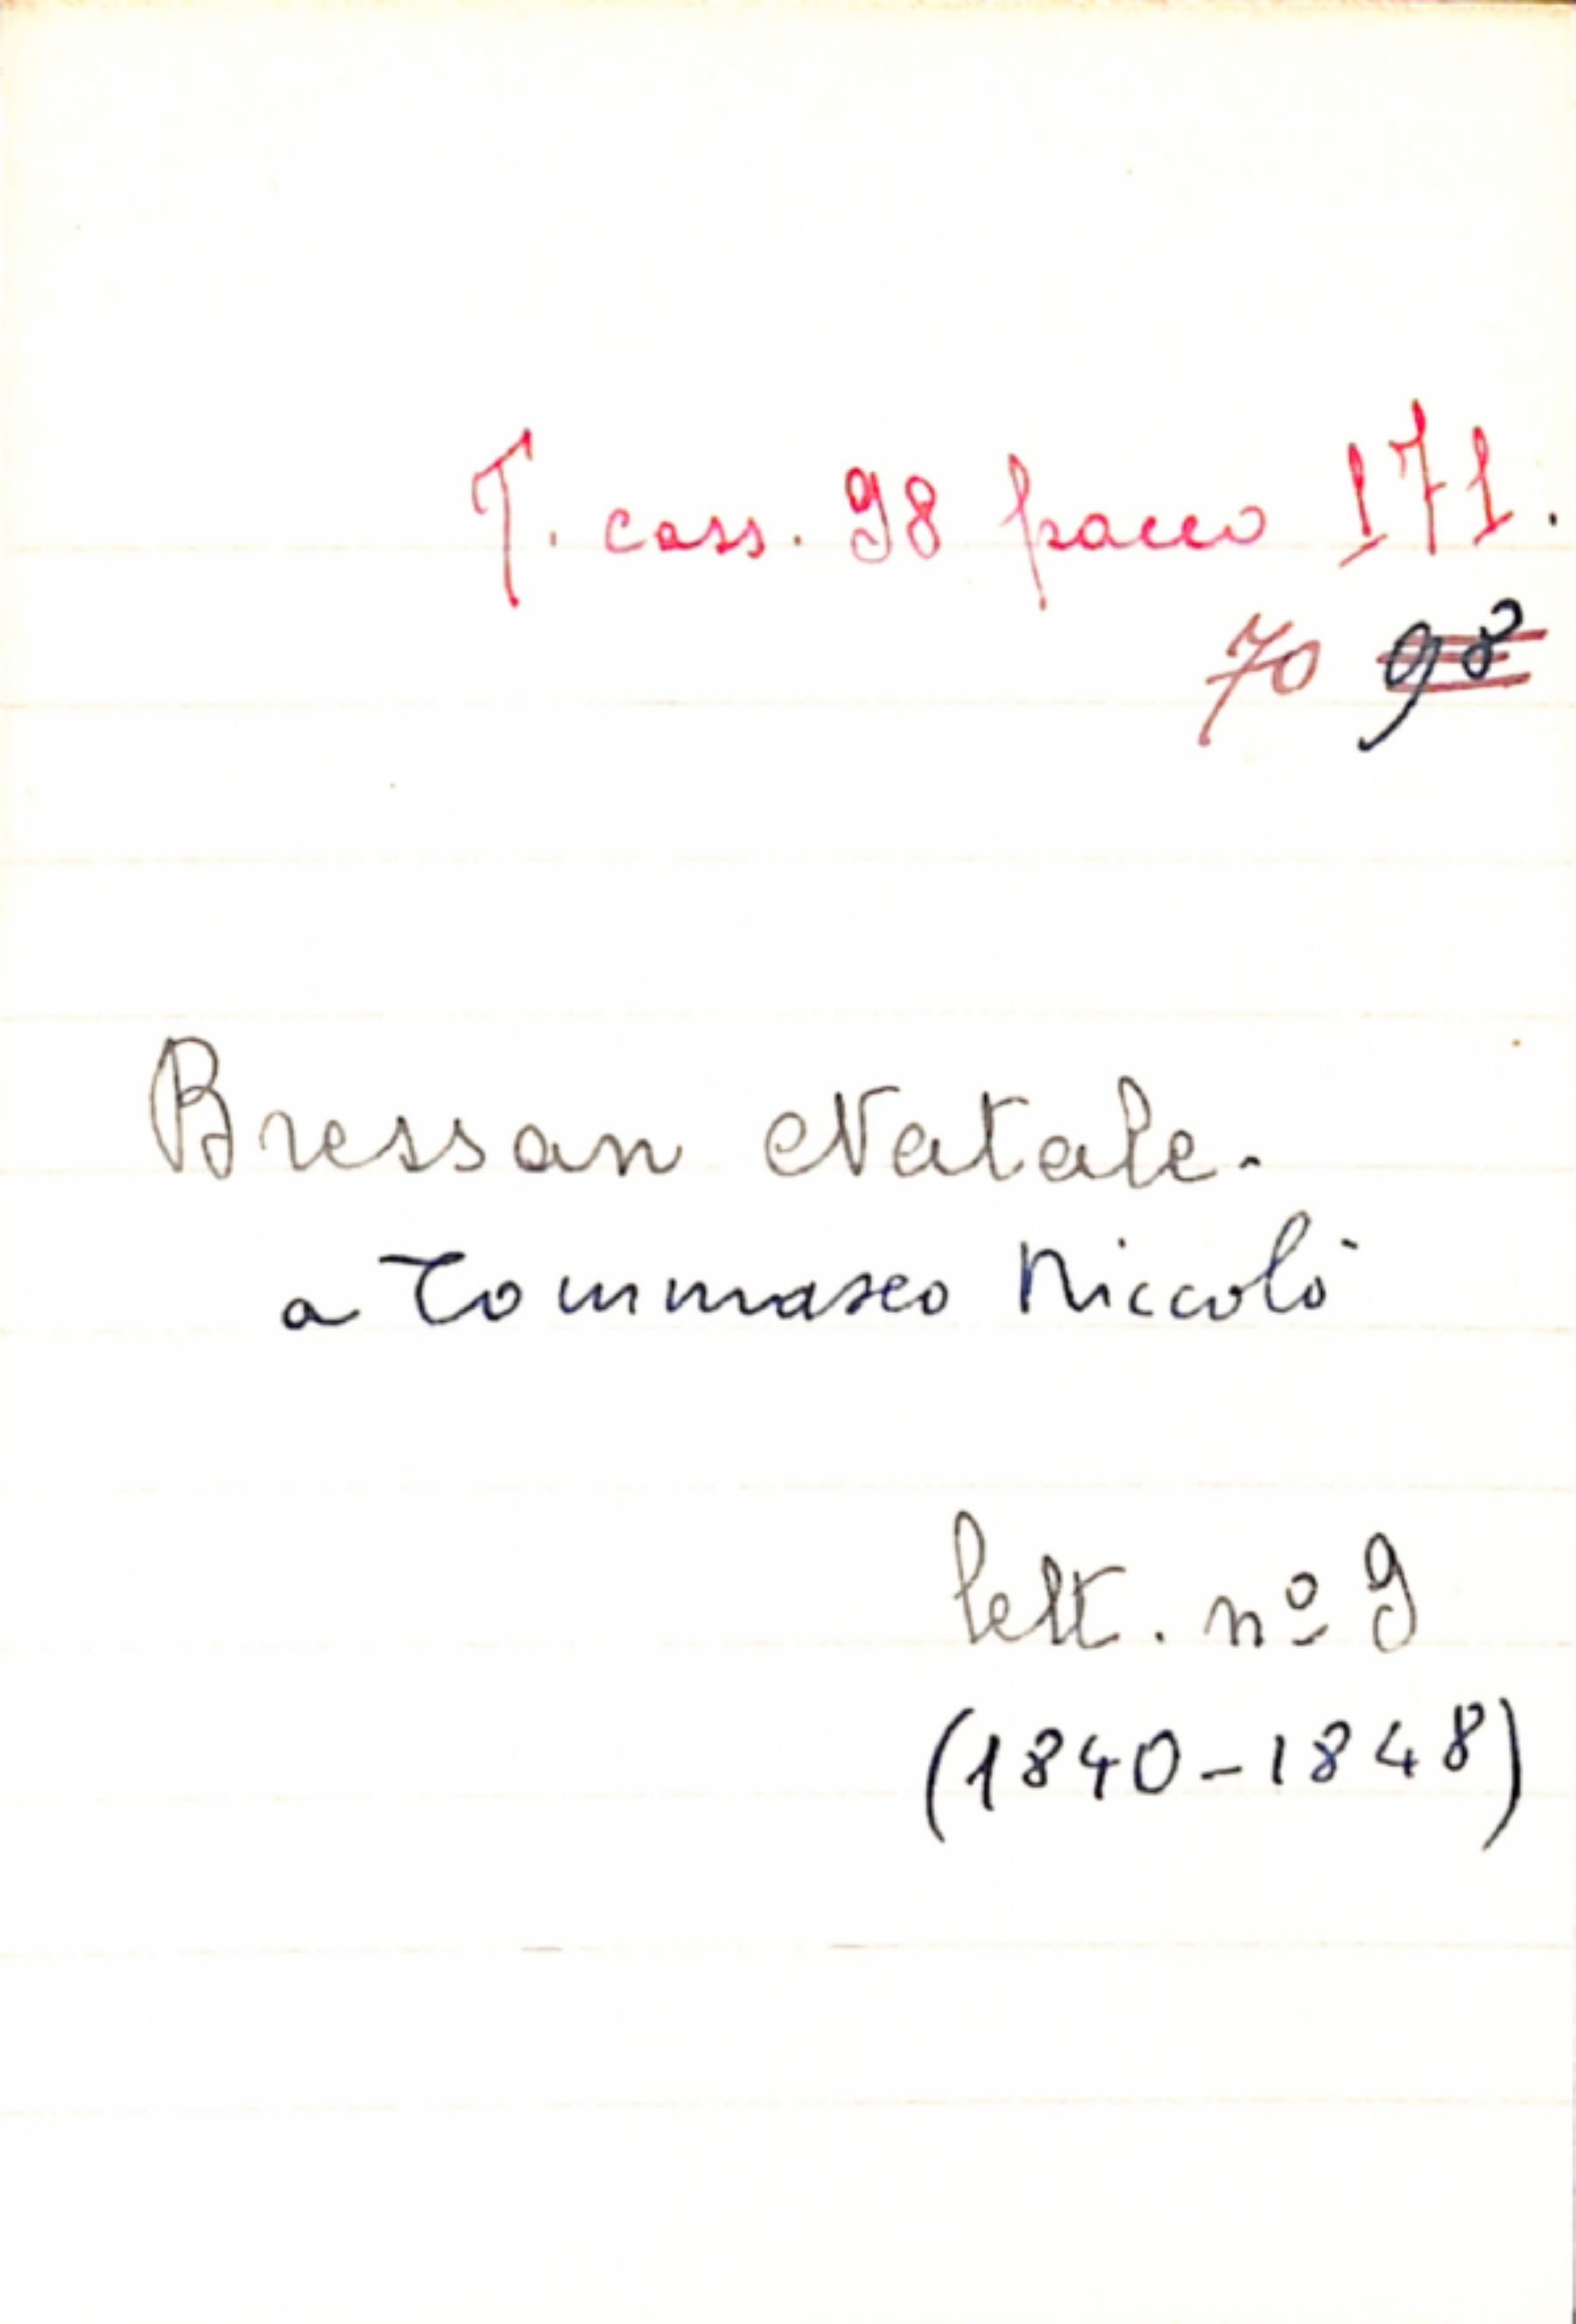 T. cass. 98 pacco 171.
70 98
Bressan Natale.
a Tommaseo Niccolò
lett. nº 9
(1840-1848)